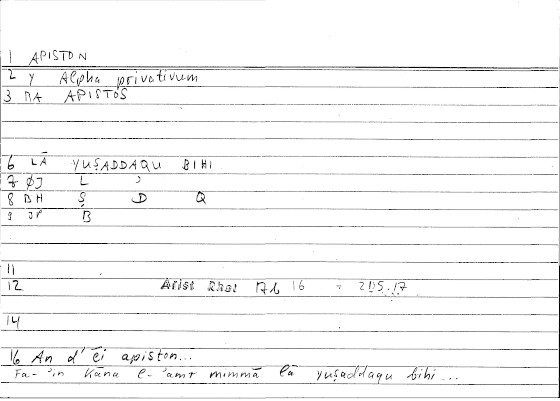 1 APISTON
2 Y Alpha privativum
3 MA APISTOS
6 LĀ YUṢADDAQU BIHI
7 ØJ L ʾ
8 BH Ṣ D Q
9 JP B
11
12 Arist Rhet 17b 16 = 205.17
14
16 An d' ēi apiston...
Fa-ʾin Kāna l-ʾamr mimmā lā yuṣaddaqu bihi...